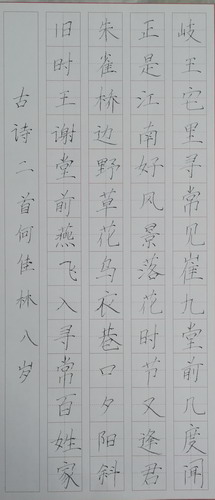 岐王宅里寻常见崔九堂前几度闻
正是江南好风景落花时节又逢君
朱雀桥边野草花乌衣巷口夕阳斜
旧时王谢堂前燕飞入寻常百姓家
古诗二首何佳林八岁